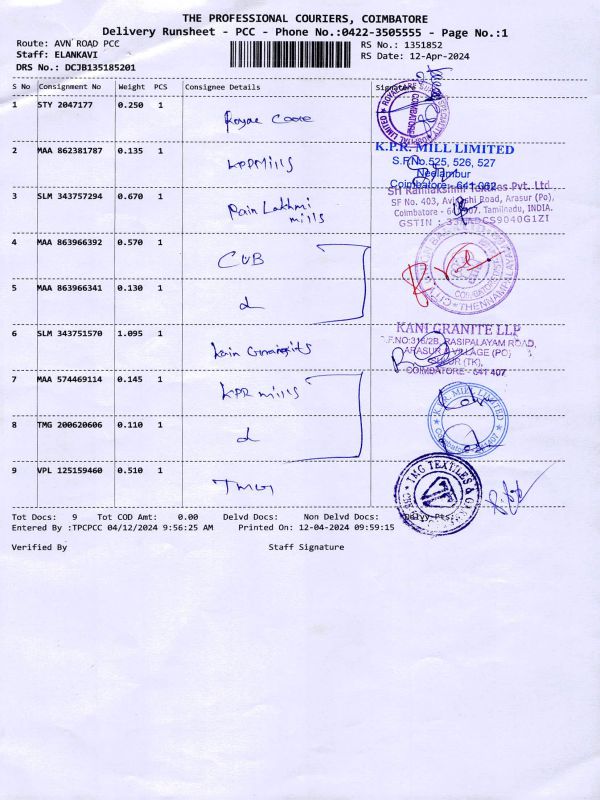 THE PROFESSIONAL COURIERS, COIMBATORE
Delivery Runsheet - PCC - Phone No.:0422-3505555 - Page No.:1
Route: AVN ROAD PCC
RS No.: 1351852
Staff: ELANKAVI
RS Date: 12-Apr-2024
DRS No.: DCJB135185201
S No Consignment No Weight PCS Consignee Details Signature
1 STY 2047177 0.250 1
2 MAA 862381787 0.135 1 KPR Mills
K.P.R. MILL LIMITED
S.F.No.525, 526, 527
Neelambur
Coimbatore - 641 062
3 SLM 343757294 0.670 1 mills
Sri Ramlakshmi Textiles Pvt. Ltd
SF No. 403, Avinashi Road, Arasur (Po),
Coimbatore - 641 407. Tamilnadu, INDIA.
4 MAA 863966392 0.570 1 CUB
5 MAA 863966341 0.130 1
6 SLM 343751570 1.095 1
KANI GRANITE LLP
S.F.NO:316/2B, RASIPALAYAM ROAD,
ARASUR VILLAGE (PO)
COIMBATORE - 641 407
7 MAA 574469114 0.145 1 KPR mills
K.P.R. MILL LIMITED
8 TMG 200620606 0.110 1
9 VPL 125159460 0.510 1 TMG
TMG TEXTILES &
Tot Docs: 9 Tot COD Amt: 0.00 Delvd Docs: Non Delvd Docs: Delvy Pts:
Entered By :TPCPCC 04/12/2024 9:56:25 AM Printed On: 12-04-2024 09:59:15
Verified By Staff Signature